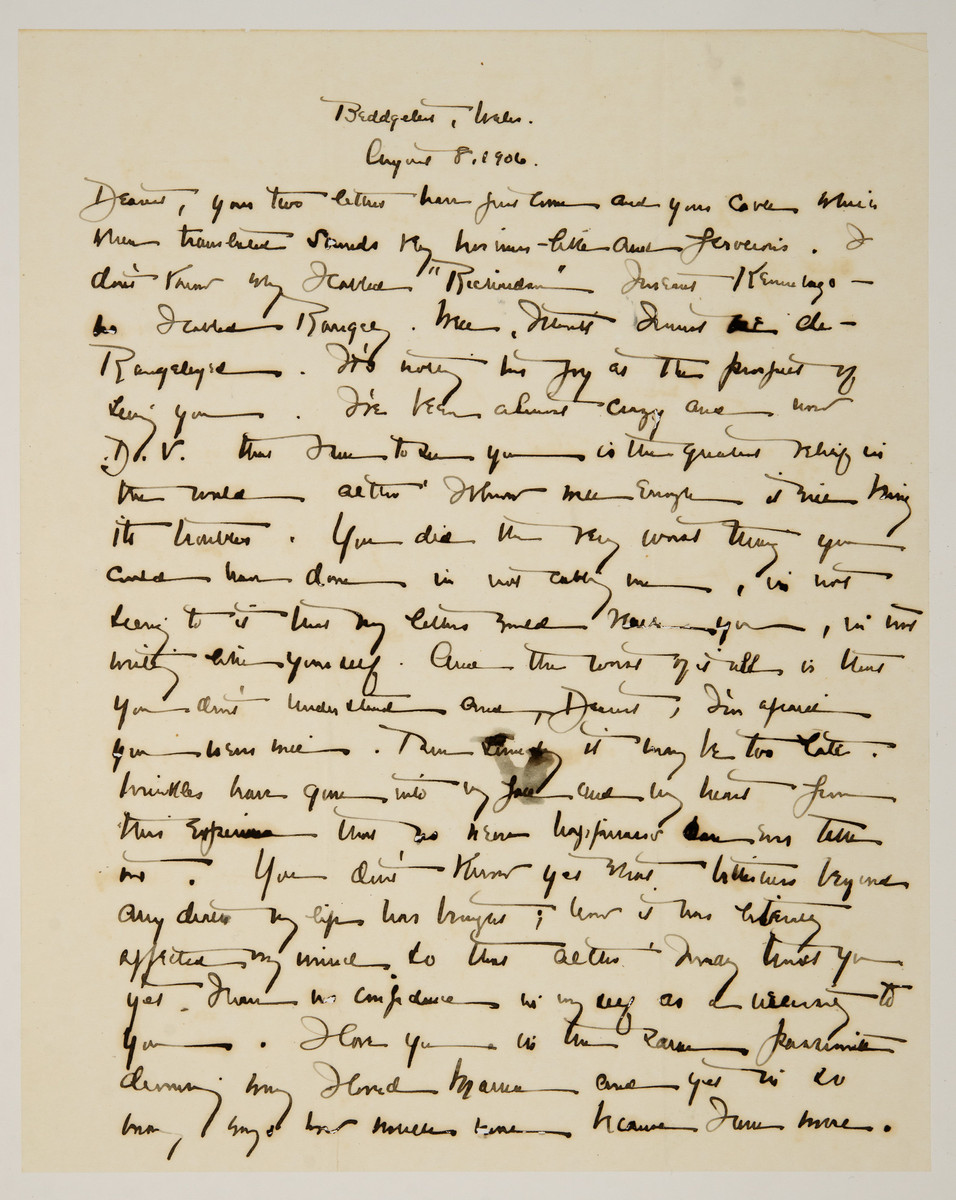 Beddgelert, Wales.
August 8, 1906.
Dearest, your two letters have just come and your cable which
when translated sounds very business-like and ferocious. I
don't know why I cabled "Richardson" I meant Kennebago —
as I cabled Rangeley. Well, I think I must be de-
Rangeleyed. It's nothing but joy as the prospect of
seeing you. I've been almost crazy and now
D.V. that I am to see you is the greatest relief in
the world altho' I know well enough it will bring
its troubles. You did the very worst thing you
could have done in not cabling me, in not
seeing to it that my letters would reach you, in not
writing like yourself. And the worst of it all is that
you don't understand and, Dearest, I'm afraid
you never will. Then some day it may be too late.
Wrinkles have gone into my face and my heart from
this experience that no new happiness can ever take
out. You don't know yet what bitterness beyond
any doubt my life has brought; how it has literally
affected my mind so that altho' I may trust you
yet I have no confidence in myself as a necessity to
you. I love you in the same passionate
devouring way I loved Mama and yet in so
many ways how much more because I have more.